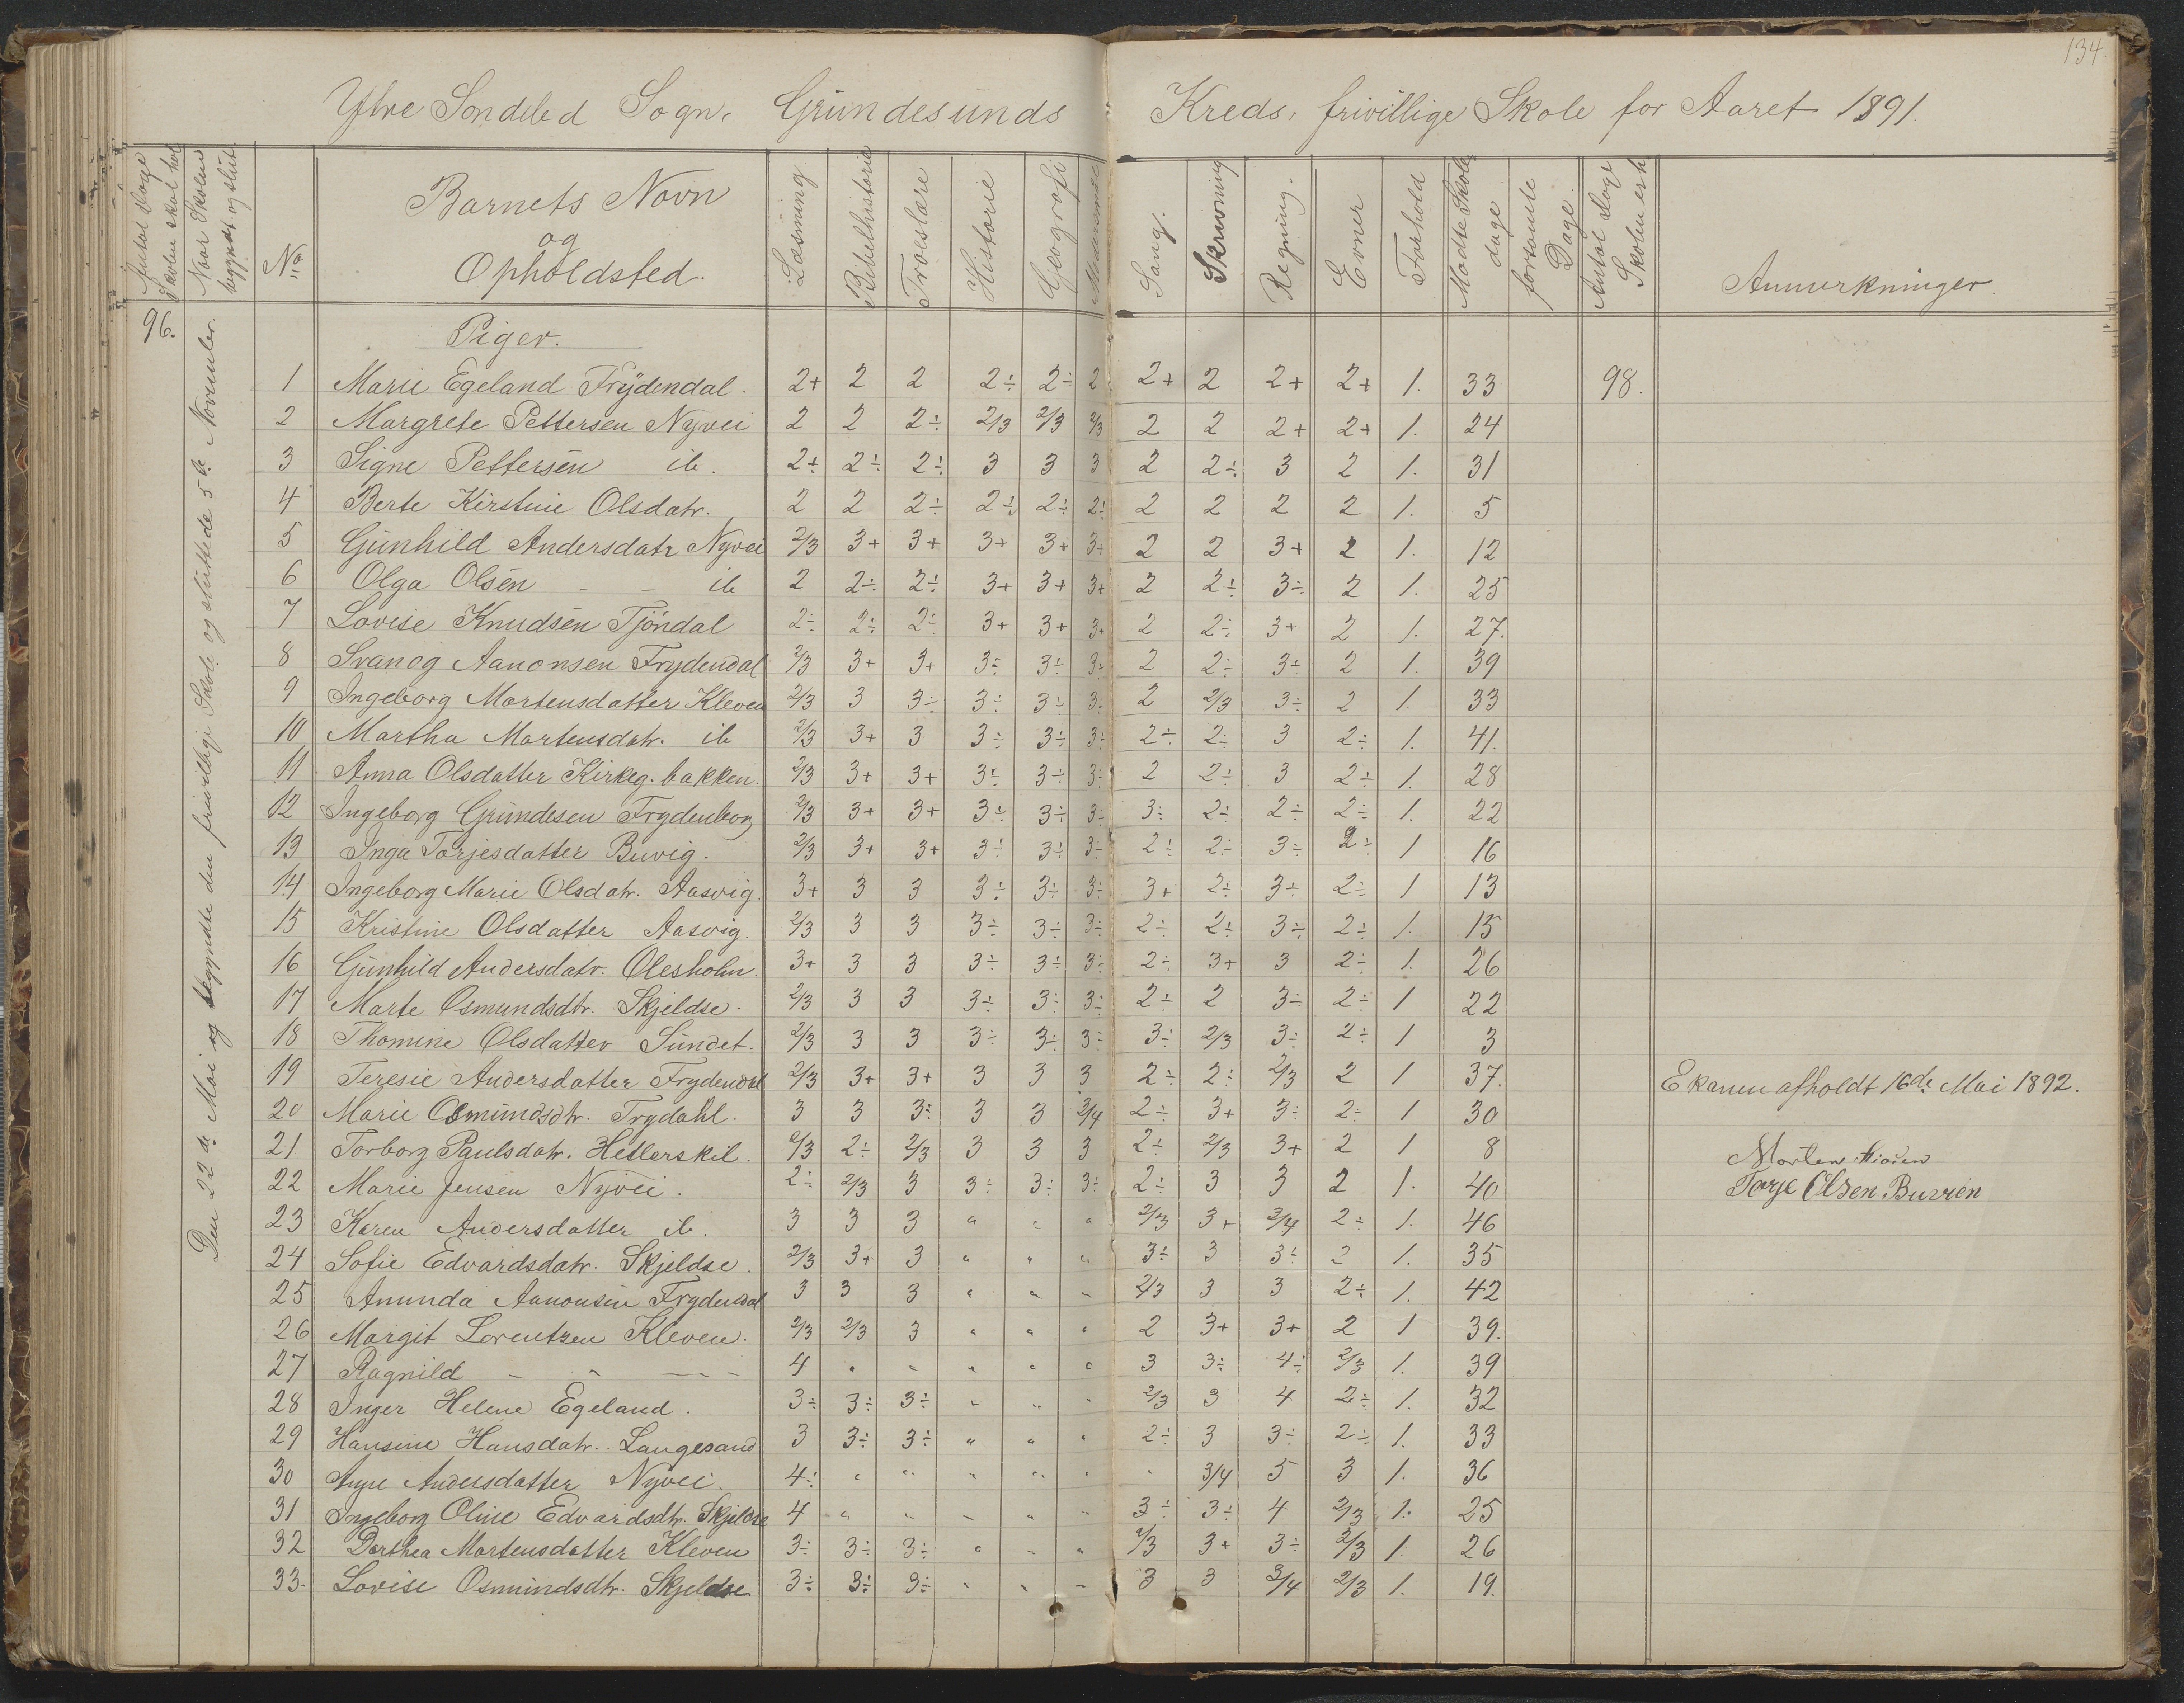 134
Ytre Söndeled Sogn, Gründesunds Kreds, frivillige Skole for Aaret 1891.
Antal Dage Skolen skal hol
Naar Skolen begyndt. og slut.
No
Barnets Navn
og
Opholdsted.
Læsning
Bibelhistorie
Troeslære
Historie
Geografi
Sang.
Skrivning
Regning.
Evner
Forhold
Mødte Skoledage
forsømte Dage.
Antal Dage Skolen er h.
Anmerkninger.
96.
Den 22de Mai og begyndte den frivillige Skole og sluttede 5te November.
Piger.
1 Marie Egeland Frÿdendal. 2+ 2 2 2÷ 2÷ 2 2+ 2 2+ 2+ 1. 33 98.
2 Margrete Pettersen Nyvei 2 2 2÷ 2/3 2/3 2/3 2 2 2+ 2+ 1. 24
3 Signe Pettersen ib. 2+ 2÷ 2÷ 3 3 3 2 2÷ 3 2 1. 31
4 Berte Kirstine Olsdatr. 2 2 2÷ 2÷ 2÷ 2÷ 2 2 2 2 1. 5
5 Günhild Andersdatr Nyvei 2/3 3+ 3+ 3+ 3+ 3+ 2 2 3+ 2 1. 12
6 Olga Olsen - - ib 2 2÷ 2÷ 3+ 3+ 3+ 2 2÷ 3÷ 2 1. 25
7 Lovise Knudsen Tjöndal 2÷ 2÷ 2÷ 3+ 3+ 3+ 2 2÷ 3+ 2 1. 27.
8 Svanag Aanonsen Frydendal 2/3 3+ 3+ 3÷ 3÷ 3÷ 2 2÷ 3÷ 2 1. 39
9 Ingeborg Martensdatter Kleven 2/3 3 3÷ 3÷ 3÷ 3÷ 2 2/3 3÷ 2 1. 33
10 Martha Martensdatr. ib 2/3 3+ 3 3÷ 3÷ 3÷ 2÷ 2÷ 3 2÷ 1. 41.
11 Anna Olsdatter Kirkeg. bakken. 2/3 3+ 3+ 3÷ 3÷ 3÷ 2 2÷ 3 2÷ 1. 28
12 Ingeborg Gründesen Frydenborg 2/3 3+ 3+ 3÷ 3÷ 3÷ 3÷ 2÷ 2÷ 2÷ 1. 22
13 Inga Torjesdatter Buvig. 2/3 3+ 3+ 3÷ 3÷ 3÷ 2÷ 2÷ 3÷ 2÷ 1 16
14 Ingeborg Marie Olsdatr. Aasvig. 3+ 3 3 3÷ 3÷ 3÷ 3+ 2÷ 3÷ 2÷ 1 13
15 Kristine Olsdatter Aasvig. 2/3 3 3 3÷ 3÷ 3÷ 2÷ 2÷ 3÷ 2÷ 1. 15
16 Günhild Andersdatr. Olesholm. 3+ 3 3 3÷ 3÷ 3÷ 2÷ 3+ 3 2÷ 1. 26
17 Marte Osmundsdtr. Skjeldsø. 2/3 3 3 3÷ 3÷ 3÷ 2÷ 2 3÷ 2÷ 1 22
18 Thomine Olsdatter Sundet. 2/3 3 3 3÷ 3÷ 3÷ 3÷ 2/3 3÷ 2÷ 1 3
19 Teresie Andersdatter Frydendal 2/3 3+ 3+ 3 3 3 2÷ 2÷ 2/3 2 1 37. Ekamen afholdt 16de Mai 1892.
20 Marie Osmündsdtr. Frydahl. 3 3 3÷ 3 3 3/4 2÷ 3+ 3÷ 2÷ 1 30
21 Torborg Paulsdatr. Hetlerskil. 2/3 2÷ 2/3 3 3 3 2÷ 2/3 3+ 2 1 8 Morten
22 Marie Jensen Nyvei. 2÷ 2/3 3 3÷ 3÷ 3÷ 2÷ 3 3 2 1. 40 Torje Olsen Buvien
23 Karen Andersdatter ib. 3 3 3 " " " 2/3 3+ 3/4 2÷ 1. 46
24 Sofie Edvardsdatr. Skjeldsø. 2/3 3+ 3 " " " 3÷ 3 3÷ 2 1. 35
25 Amunda Aanonsen Frydendal 3 3 3 " " " 2/3 3 3 2÷ 1. 42
26 Margit Lorentzen Kleven. 2/3 2/3 3 " " " 2 3+ 3+ 2 1 39.
27 Ragnild - - - - 4 " " " " " 3 3÷ 4÷ 2/3 1. 39
28 Inger Helene Egeland. 3÷ 3÷ 3÷ " " " 2/3 3 4 2÷ 1. 32
29 Hansine Hansdatr. Langesand 3 3÷ 3÷ " " " 2÷ 3 3÷ 2÷ 1. 33
30 Andersdatter Nyvei. 4÷ " " " " " " 3/4 5 3 1. 36
31 Ingeborg Oline Edvardsdtr. Skjeldsø 4 " " " " " 3÷ 3÷ 4 2/3 1. 25
32 Dorthea Martensdatter Kleven 3÷ 3÷ 3÷ " " " 2/3 3+ 3÷ 2/3 1. 26
33. Lovise Osmündsdtr. Skjeldsø. 3÷ 3÷ 3÷ " " " 3 3 3/4 2/3 1. 19.